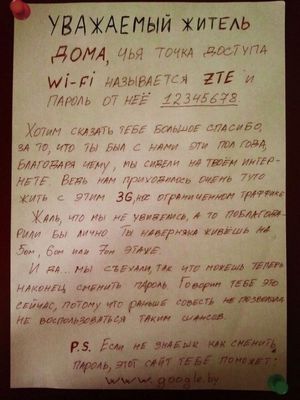 УВАЖАЕМЫЙ ЖИТЕЛЬ
ДОМА, ЧЬЯ ТОЧКА ДОСТУПА
Wi-Fi НАЗЫВАЕТСЯ ZTE И
ПАРОЛЬ ОТ НЕЁ 12345678.
ХОТИМ СКАЗАТЬ ТЕБЕ БОЛЬШОЕ СПАСИБО,
ЗА ТО, ЧТО ТЫ БЫЛ С НАМИ ЭТИ ПОЛ ГОДА,
БЛАГОДАРЯ ЧЕМУ, МЫ СИДЕЛИ НА ТВОЁМ ИНТЕР-
НЕТЕ. ВЕДЬ НАМ ПРИХОДИЛОСЬ ОЧЕНЬ ТУГО
ЖИТЬ С ЭТИМ 3G, ОГРАНИЧЕННОМ ТРАФИКЕ
ЖАЛЬ, ЧТО МЫ НЕ УВИДЕЛИСЬ, А ТО ПОБЛАГОДА-
РИЛИ БЫ ЛИЧНО. ТЫ НАВЕРНЯКА ЖИВЁШЬ НА
5ОМ, 6ОМ ИЛИ 7ОМ ЭТАЖЕ.
И ДА... МЫ СЪЕХАЛИ, ТАК ЧТО МОЖЕШЬ ТЕПЕРЬ
НАКОНЕЦ СМЕНИТЬ ПАРОЛЬ. ГОВОРИМ ТЕБЕ ЭТО
СЕЙЧАС, ПОТОМУ ЧТО РАНЬШЕ СОВЕСТЬ НЕ ПОЗВОЛЯЛА
НЕ ВОСПОЛЬЗОВАТЬСЯ ТАКИМ ШАНСОМ.
P.S. ЕСЛИ НЕ ЗНАЕШЬ КАК СМЕНИТЬ
ПАРОЛЬ, ЭТОТ САЙТ ТЕБЕ ПОМОЖЕТ:
www.google.by